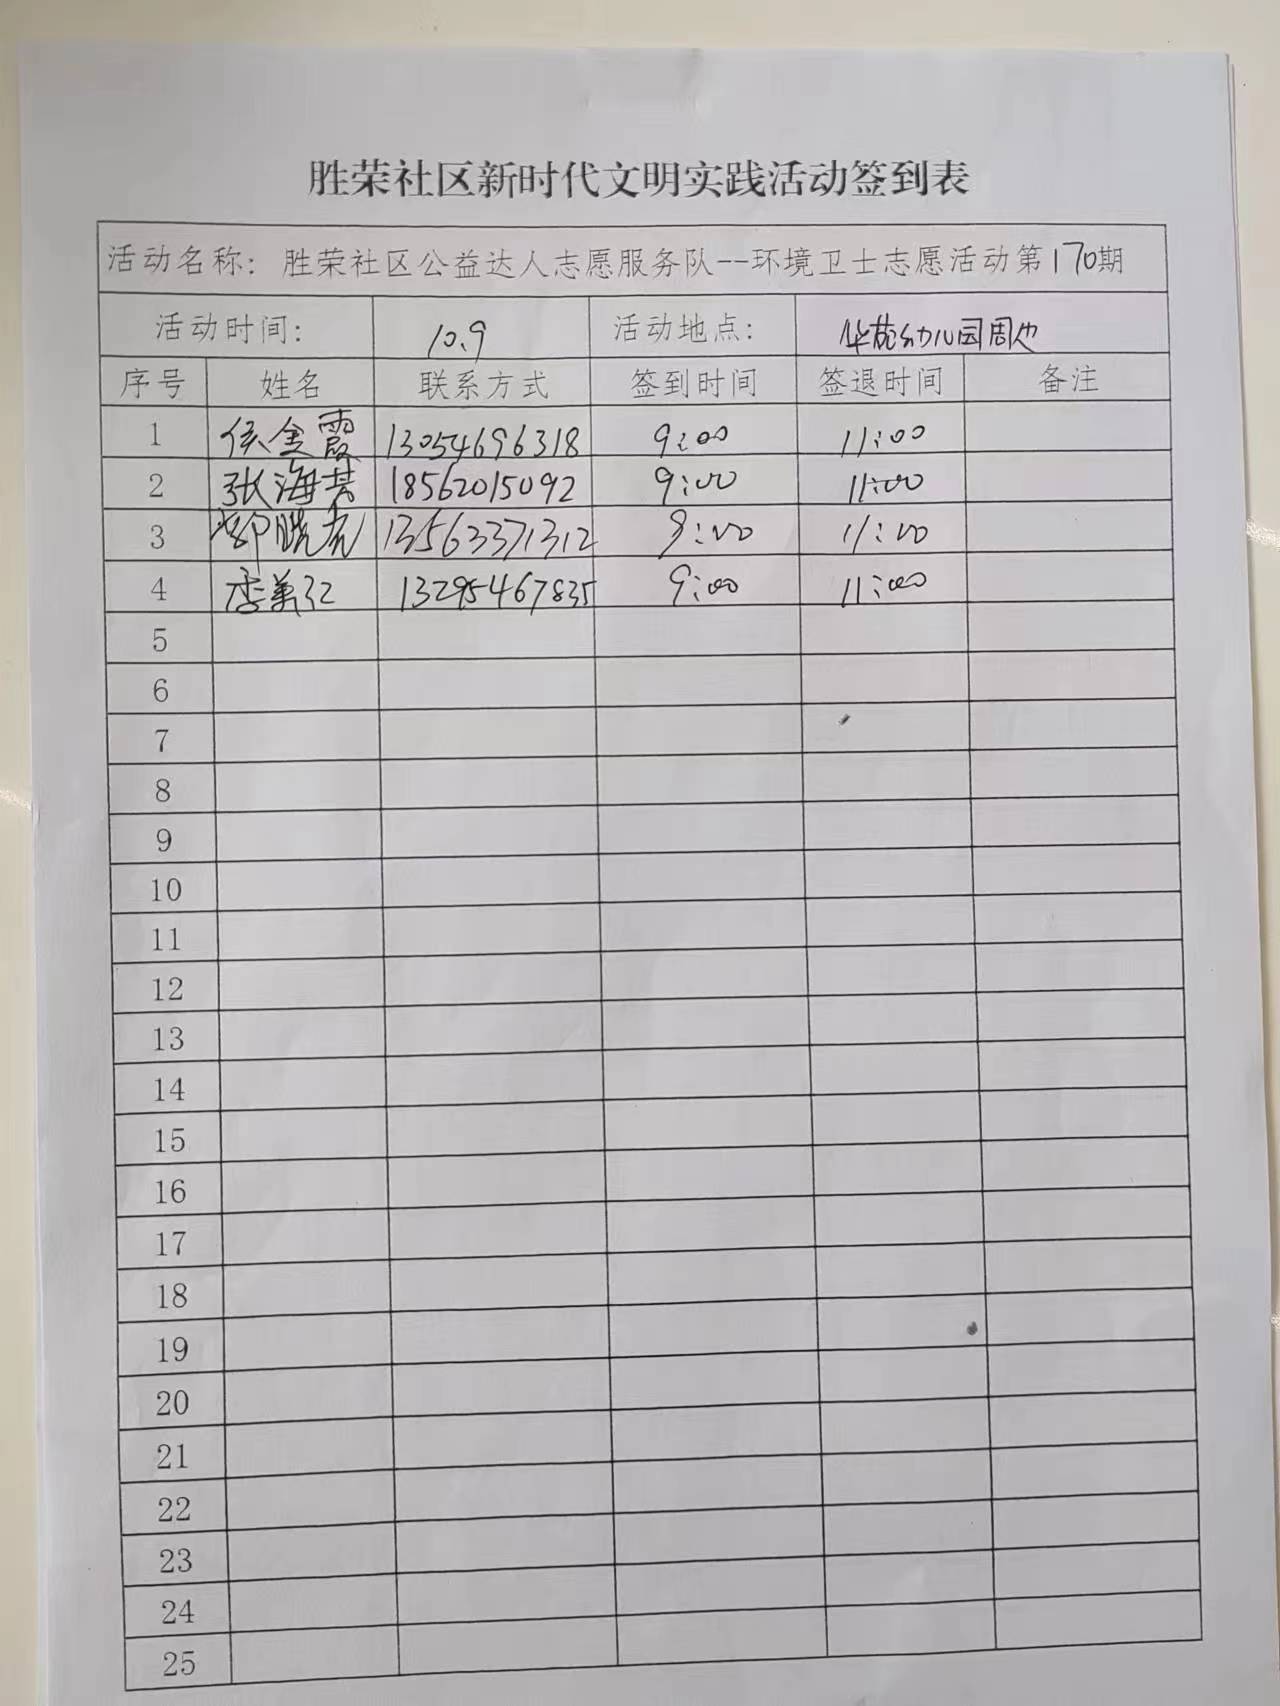 胜荣社区新时代文明实践活动签到表
活动名称：胜荣社区公益达人志愿服务队--环境卫士志愿活动第170期
活动时间： 10.9 活动地点： 华苑幼儿园周边
序号 姓名 联系方式 签到时间 签退时间 备注
1 侯金霞 13054696318 9:00 11:00
2 张海芸 18562015092 9:00 11:00
3 晓 13563371312 9:00 11:00
4 季美江 13295467835 9:00 11:00
5
6
7
8
9
10
11
12
13
14
15
16
17
18
19
20
21
22
23
24
25